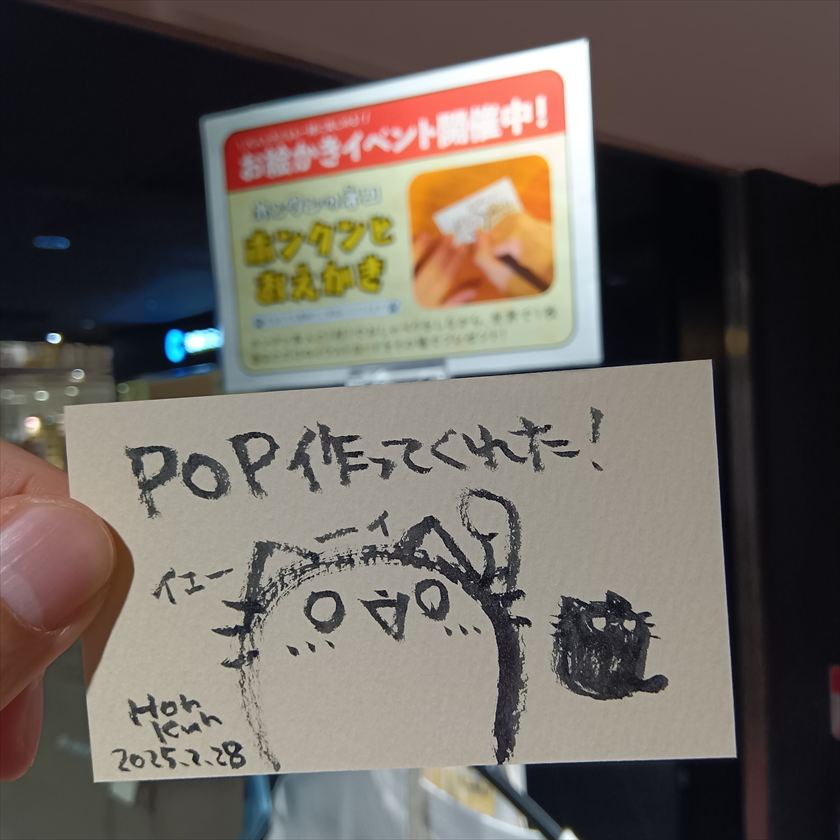 お絵かきイベント開催中！
ホンクンと
おえかき
POP作ってくれた！
イエーーイ
Hon
Kun
2025.2.28